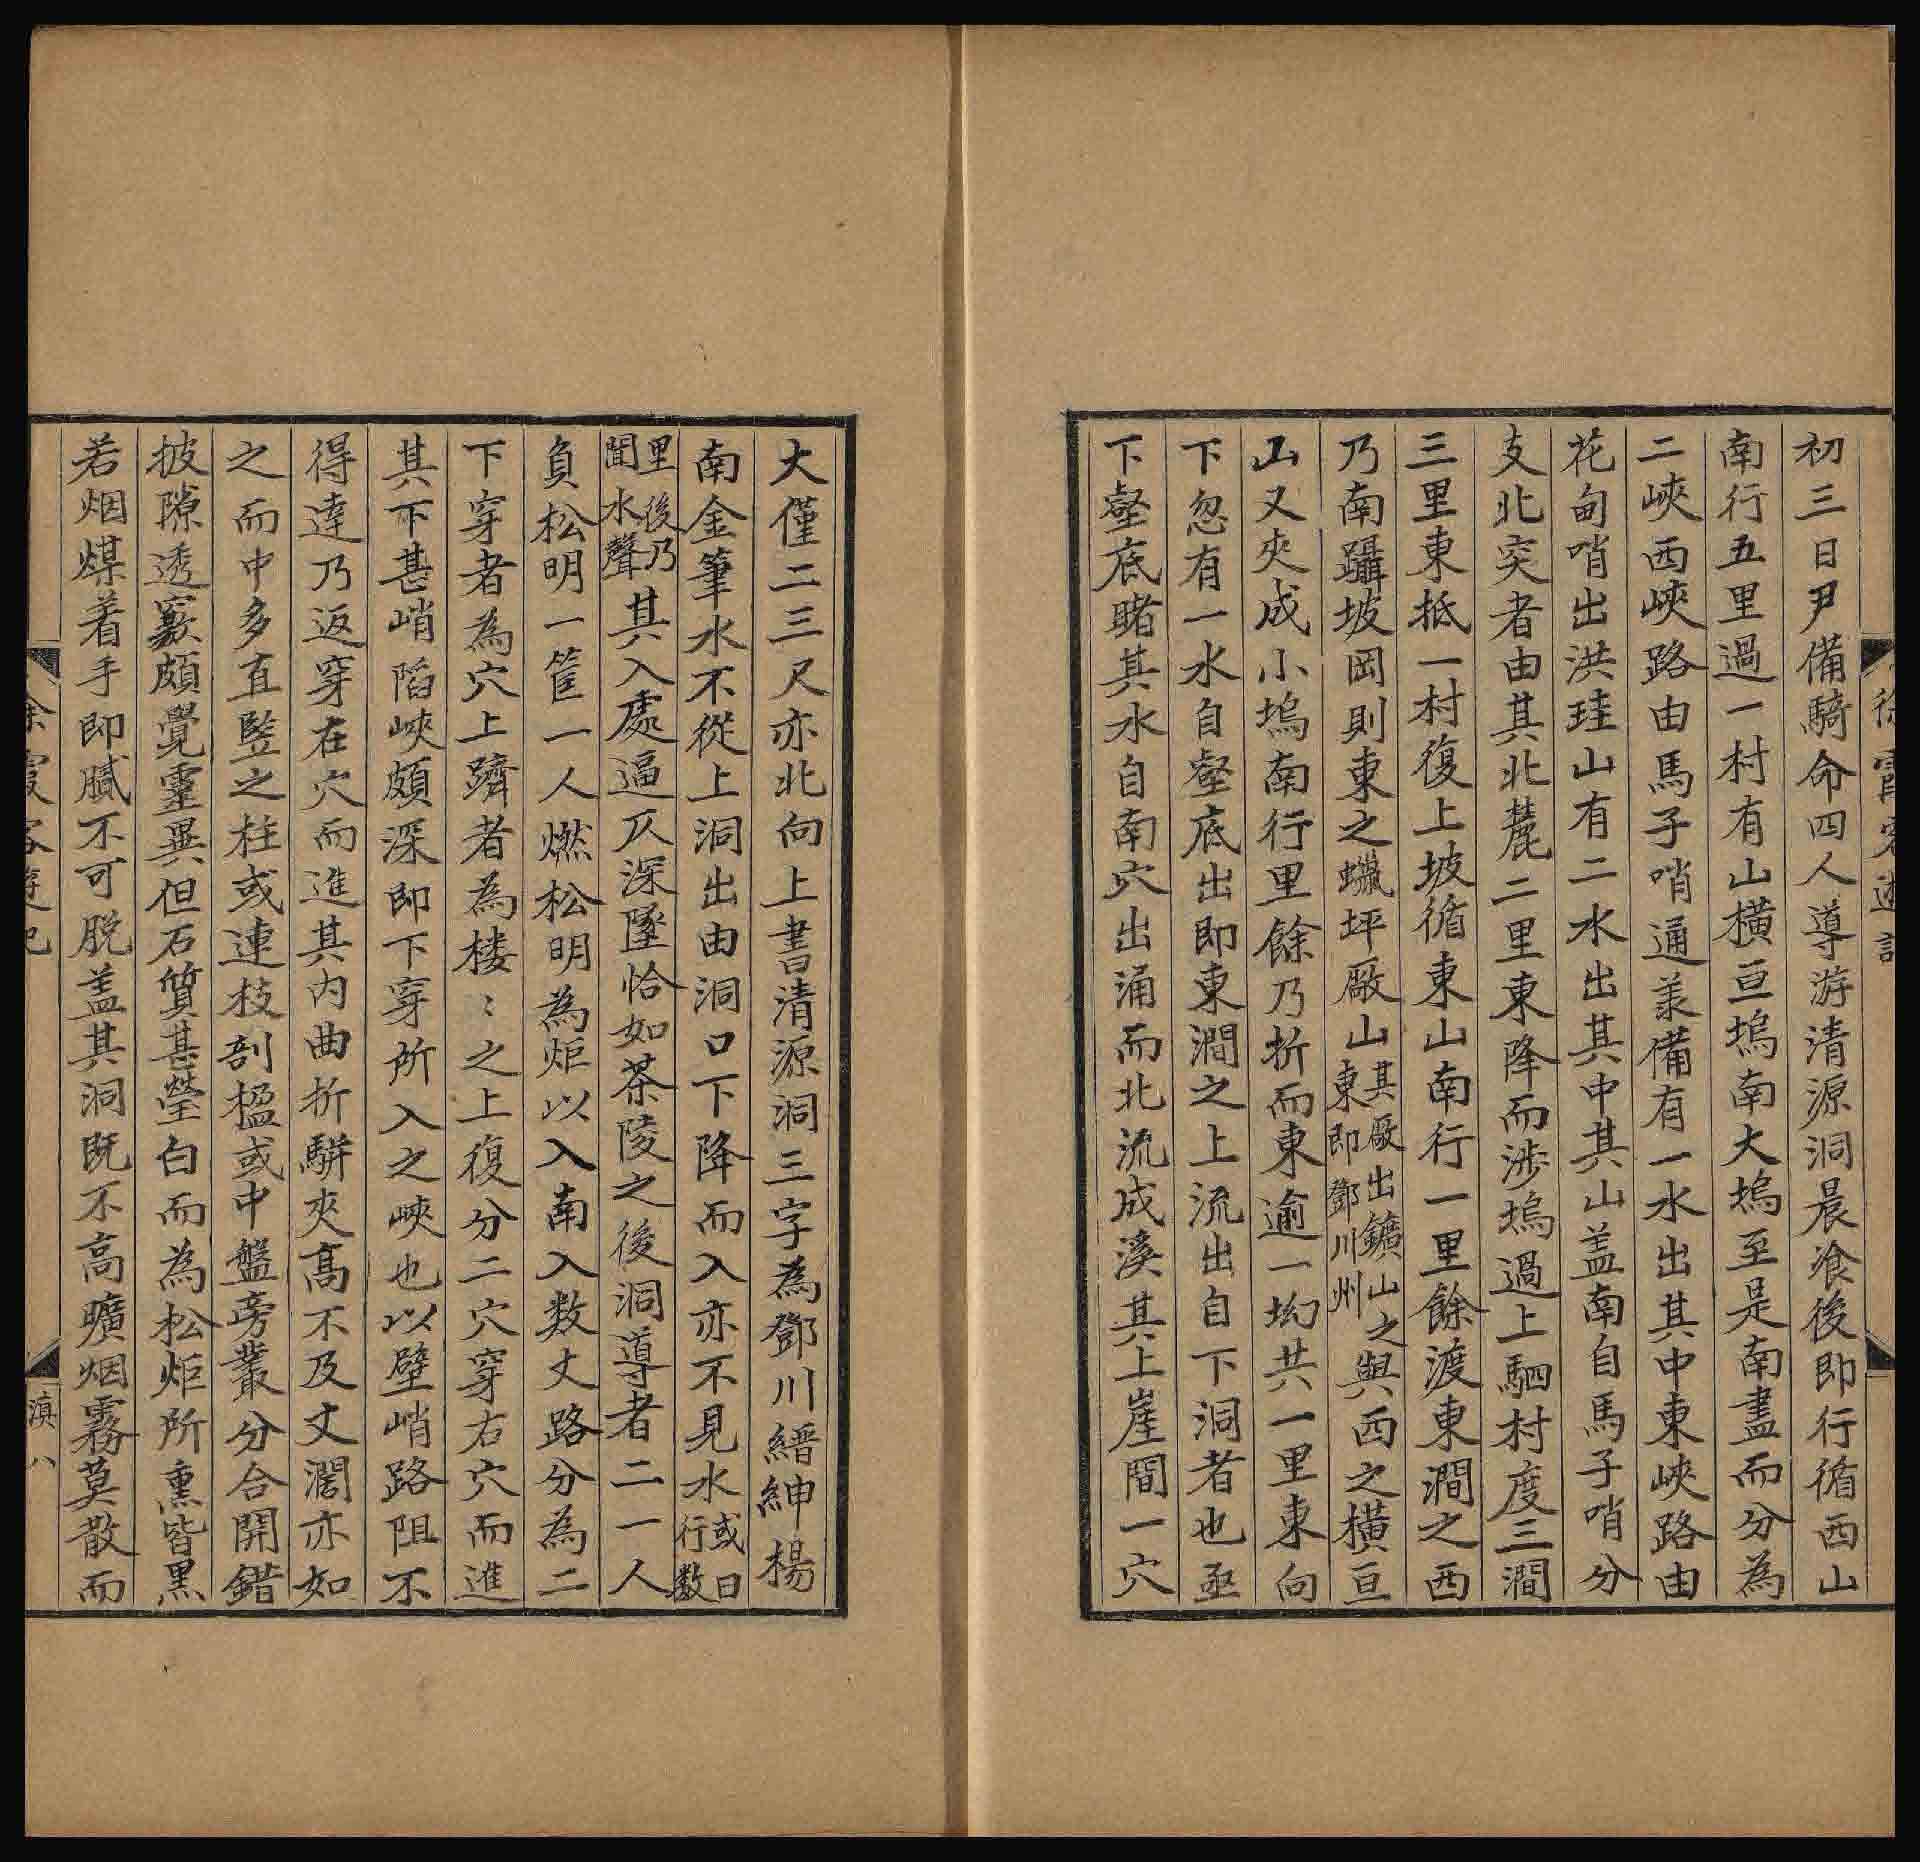 初三日尹備騎命四人導游清源洞晨飡後即行循西山
南行五里過一村有山横亘塢南大塢至是南盡而分為
二峽西峽路由馬子哨通羕備有一水出其中東峽路由
花甸哨出洪珪山有二水出其中其山盖南自馬子哨分
支北突者由其北麓二里東降而涉塢過上駟村度三澗
三里東抵一村復上坡循東山南行一里餘渡東澗之西
乃南躡坡岡則東之蠟坪廠山其廠出鑛山之東即鄧川州與西之横亘
山又夾成小塢南行里餘乃折而東逾一坳共一里東向
下忽有一水自壑底出即東澗之上流出自下洞者也亟
下壑底睹其水自南穴出涌而北流成溪其上崖間一穴
大僅二三尺亦北向上書清源洞三字為鄧川縉紳楊
南金筆水不從上洞出由洞口下降而入亦不見水或曰行数
里後乃聞水聲其入處逼仄深墜恰如茶陵之後洞導者二一人
負松明一筐一人燃松明為炬以入南入数丈路分為二
下穿者為穴上躋者為楼〻之上復分二穴穿右穴而進
其下甚峭蹈峽頗深即下穿所入之峽也以壁峭路阻不
得達乃返穿在穴而進其内曲折駢夾高不及丈濶亦如
之而中多直豎之柱或連枝剖楹或中盤旁叢分合開錯
披隙透竅頗覺靈異但石質甚瑩白而為松炬所熏皆黑
若烟煤着手即膩不可脱盖其洞既不高曠烟霧莫散而
徐霞客遊記
滇八